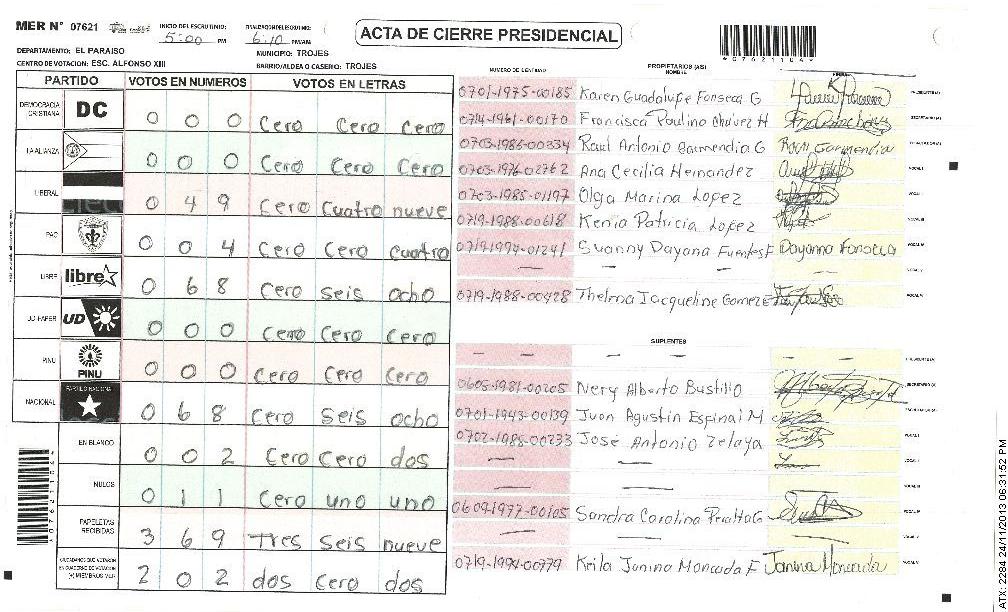 MER N° 07621 INICIO DEL ESCRUTINIO: 5:00 PM FINALIZACION DEL ESCRUTINIO: 6:10 PM/AM ACTA DE CIERRE PRESIDENCIAL *07621104*
DEPARTAMENTO: EL PARAISO MUNICIPIO: TROJES
CENTRO DE VOTACION: ESC. ALFONSO XIII BARRIO/ALDEA O CASERIO: TROJES
PARTIDO VOTOS EN NUMEROS VOTOS EN LETRAS
DEMOCRACIA CRISTIANA DC 0 0 0 Cero Cero Cero
LA ALIANZA 0 0 0 Cero Cero Cero
LIBERAL 0 4 9 Cero Cuatro nueve
PAC 0 0 4 Cero Cero cuatro
LIBRE libre 0 6 8 Cero seis ocho
UD-FAPER UD 0 0 0 Cero Cero Cero
PINU PINU 0 0 0 Cero Cero Cero
NACIONAL PARTIDO NACIONAL 0 6 8 Cero seis ocho
EN BLANCO 0 0 2 Cero Cero dos
NULOS 0 1 1 Cero uno uno
PAPELETAS RECIBIDAS 3 6 9 Tres seis nueve
CIUDADANOS QUE VOTARON EN CUADERNO DE VOTACION (+) MIEMBROS MER 2 0 2 dos cero dos
*07621104*
NUMERO DE IDENTIDAD PROPIETARIOS (AS) NOMBRE FIRMA
0701-1975-00185 Karen Guadalupe Fonseca G PRESIDENTE (A)
0714-1961-00170 Francisca Paulina Chavez H SECRETARIO (A)
0703-1986-00334 Raul Antonio Garmendia G Raul Garmendia ESCRUTADOR (A)
0703-1976-02762 Ana Cecilia Hernandez VOCAL I
0703-1985-01197 Olga Marina Lopez VOCAL II
0719-1988-00618 Kenia Patricia Lopez VOCAL III
0719-1994-01241 Suanny Dayana Fuentes F Dayanna Fonseca VOCAL IV
— — — VOCAL V
0719-1988-00428 Thelma Jacqueline Gomez E VOCAL VI
SUPLENTES
— — — — — — PRESIDENTE (A)
0605-1981-00205 Nery Alberto Bustillo SECRETARIO (A)
0701-1943-00139 Juan Agustin Espinal M ESCRUTADOR (A)
0702-1988-00233 José Antonio Zelaya VOCAL I
— — VOCAL II
— — VOCAL III
0609-1977-00105 Sandra Carolina Peralta G VOCAL IV
— — VOCAL V
0719-1994-00779 Keila Janina Moncada F Janina Moncada VOCAL VI
ATX: 2284 24/11/2013 06:31:52 PM